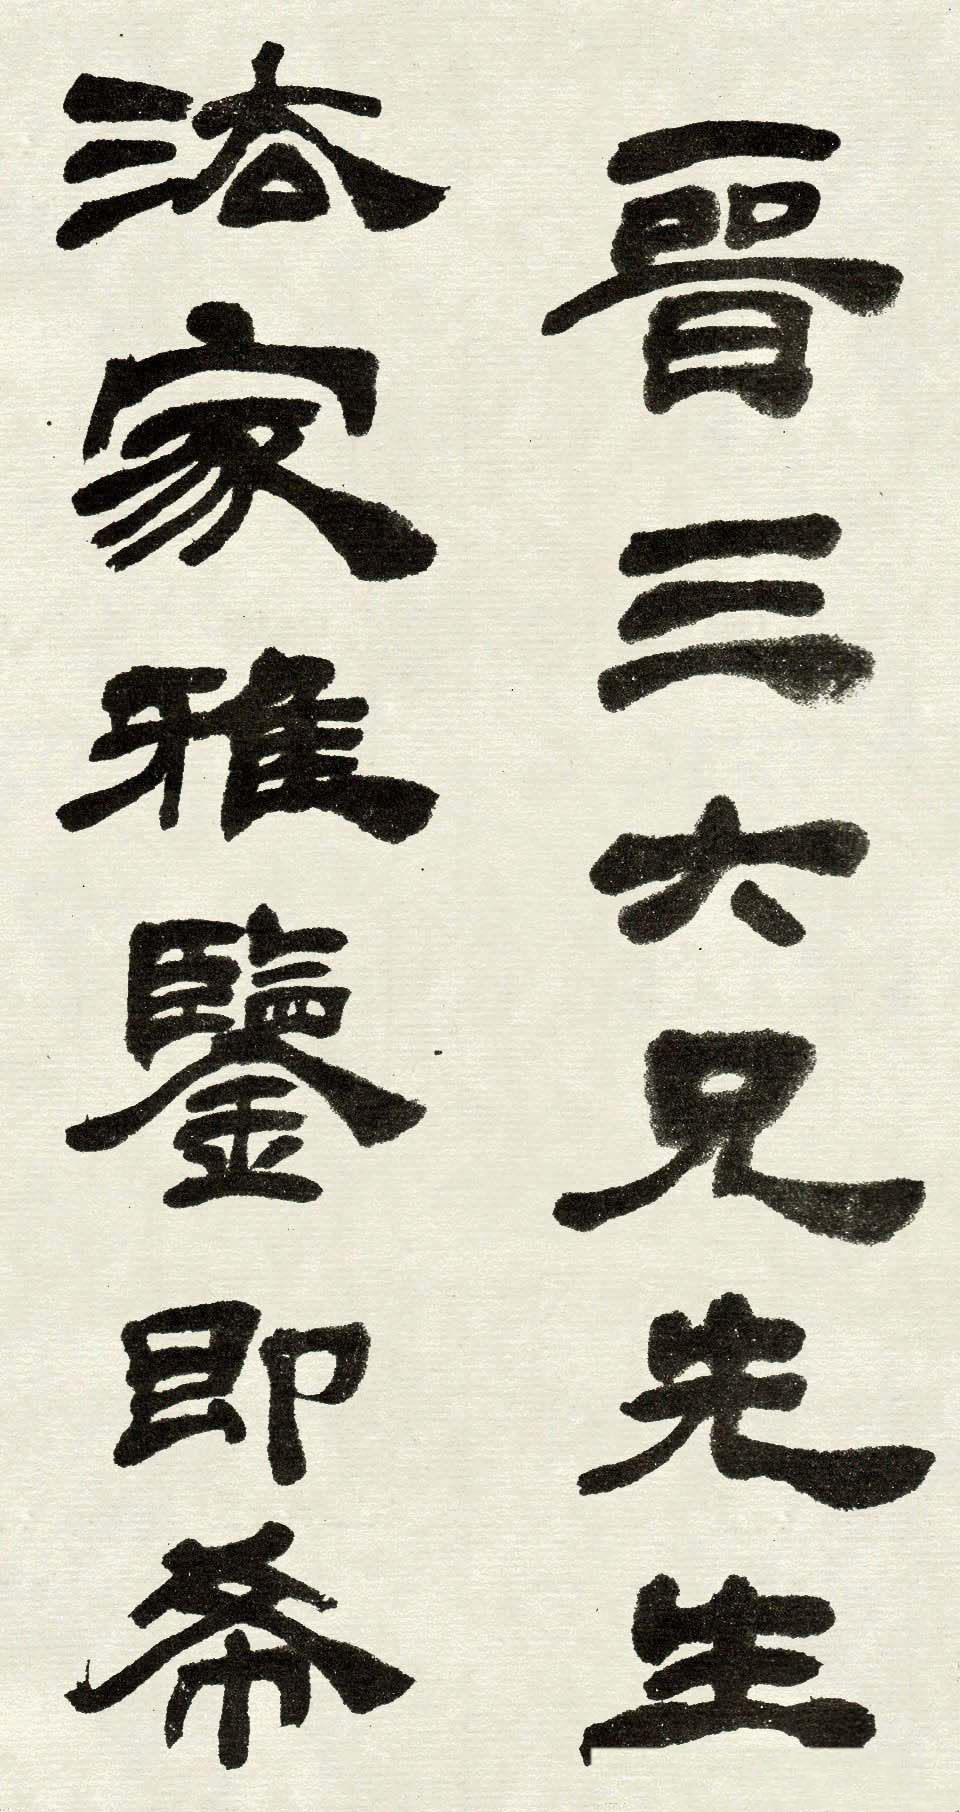 晉三六兄先生
法家雅鑒即希